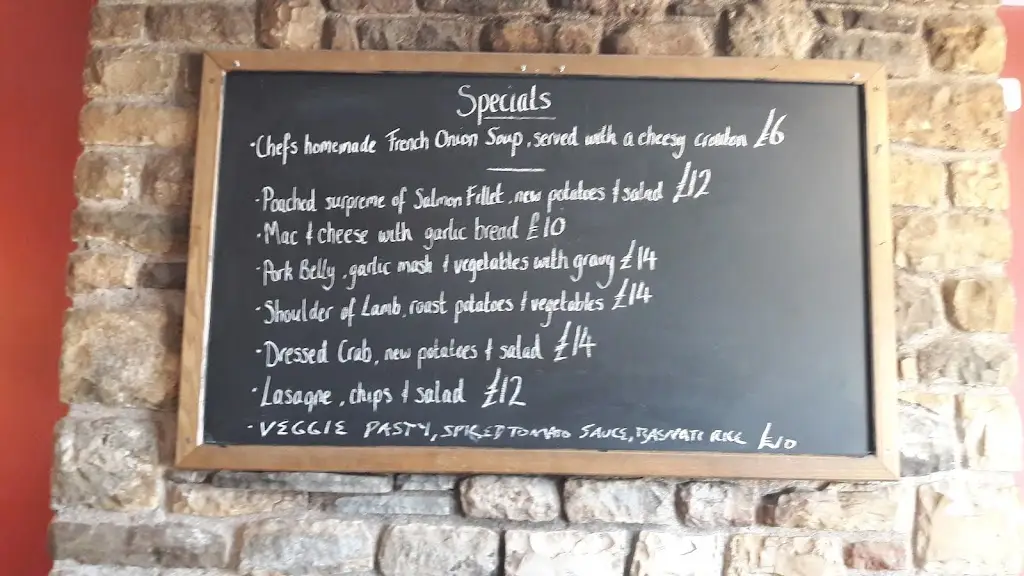 Specials
·Chefs homemade French Onion Soup, served with a cheesy crouton £6
·Poached surpreme of Salmon Fillet, new potatoes & salad £12
·Mac & cheese with garlic bread £10
·Pork Belly, garlic mash & vegetables with gravy £14
·Shoulder of Lamb, roast potatoes & vegetables £14
·Dressed Crab, new potatoes & salad £14
·Lasagne, chips & salad £12
·VEGGIE PASTY, SPICED TOMATO SAUCE, BASMATI RICE £10